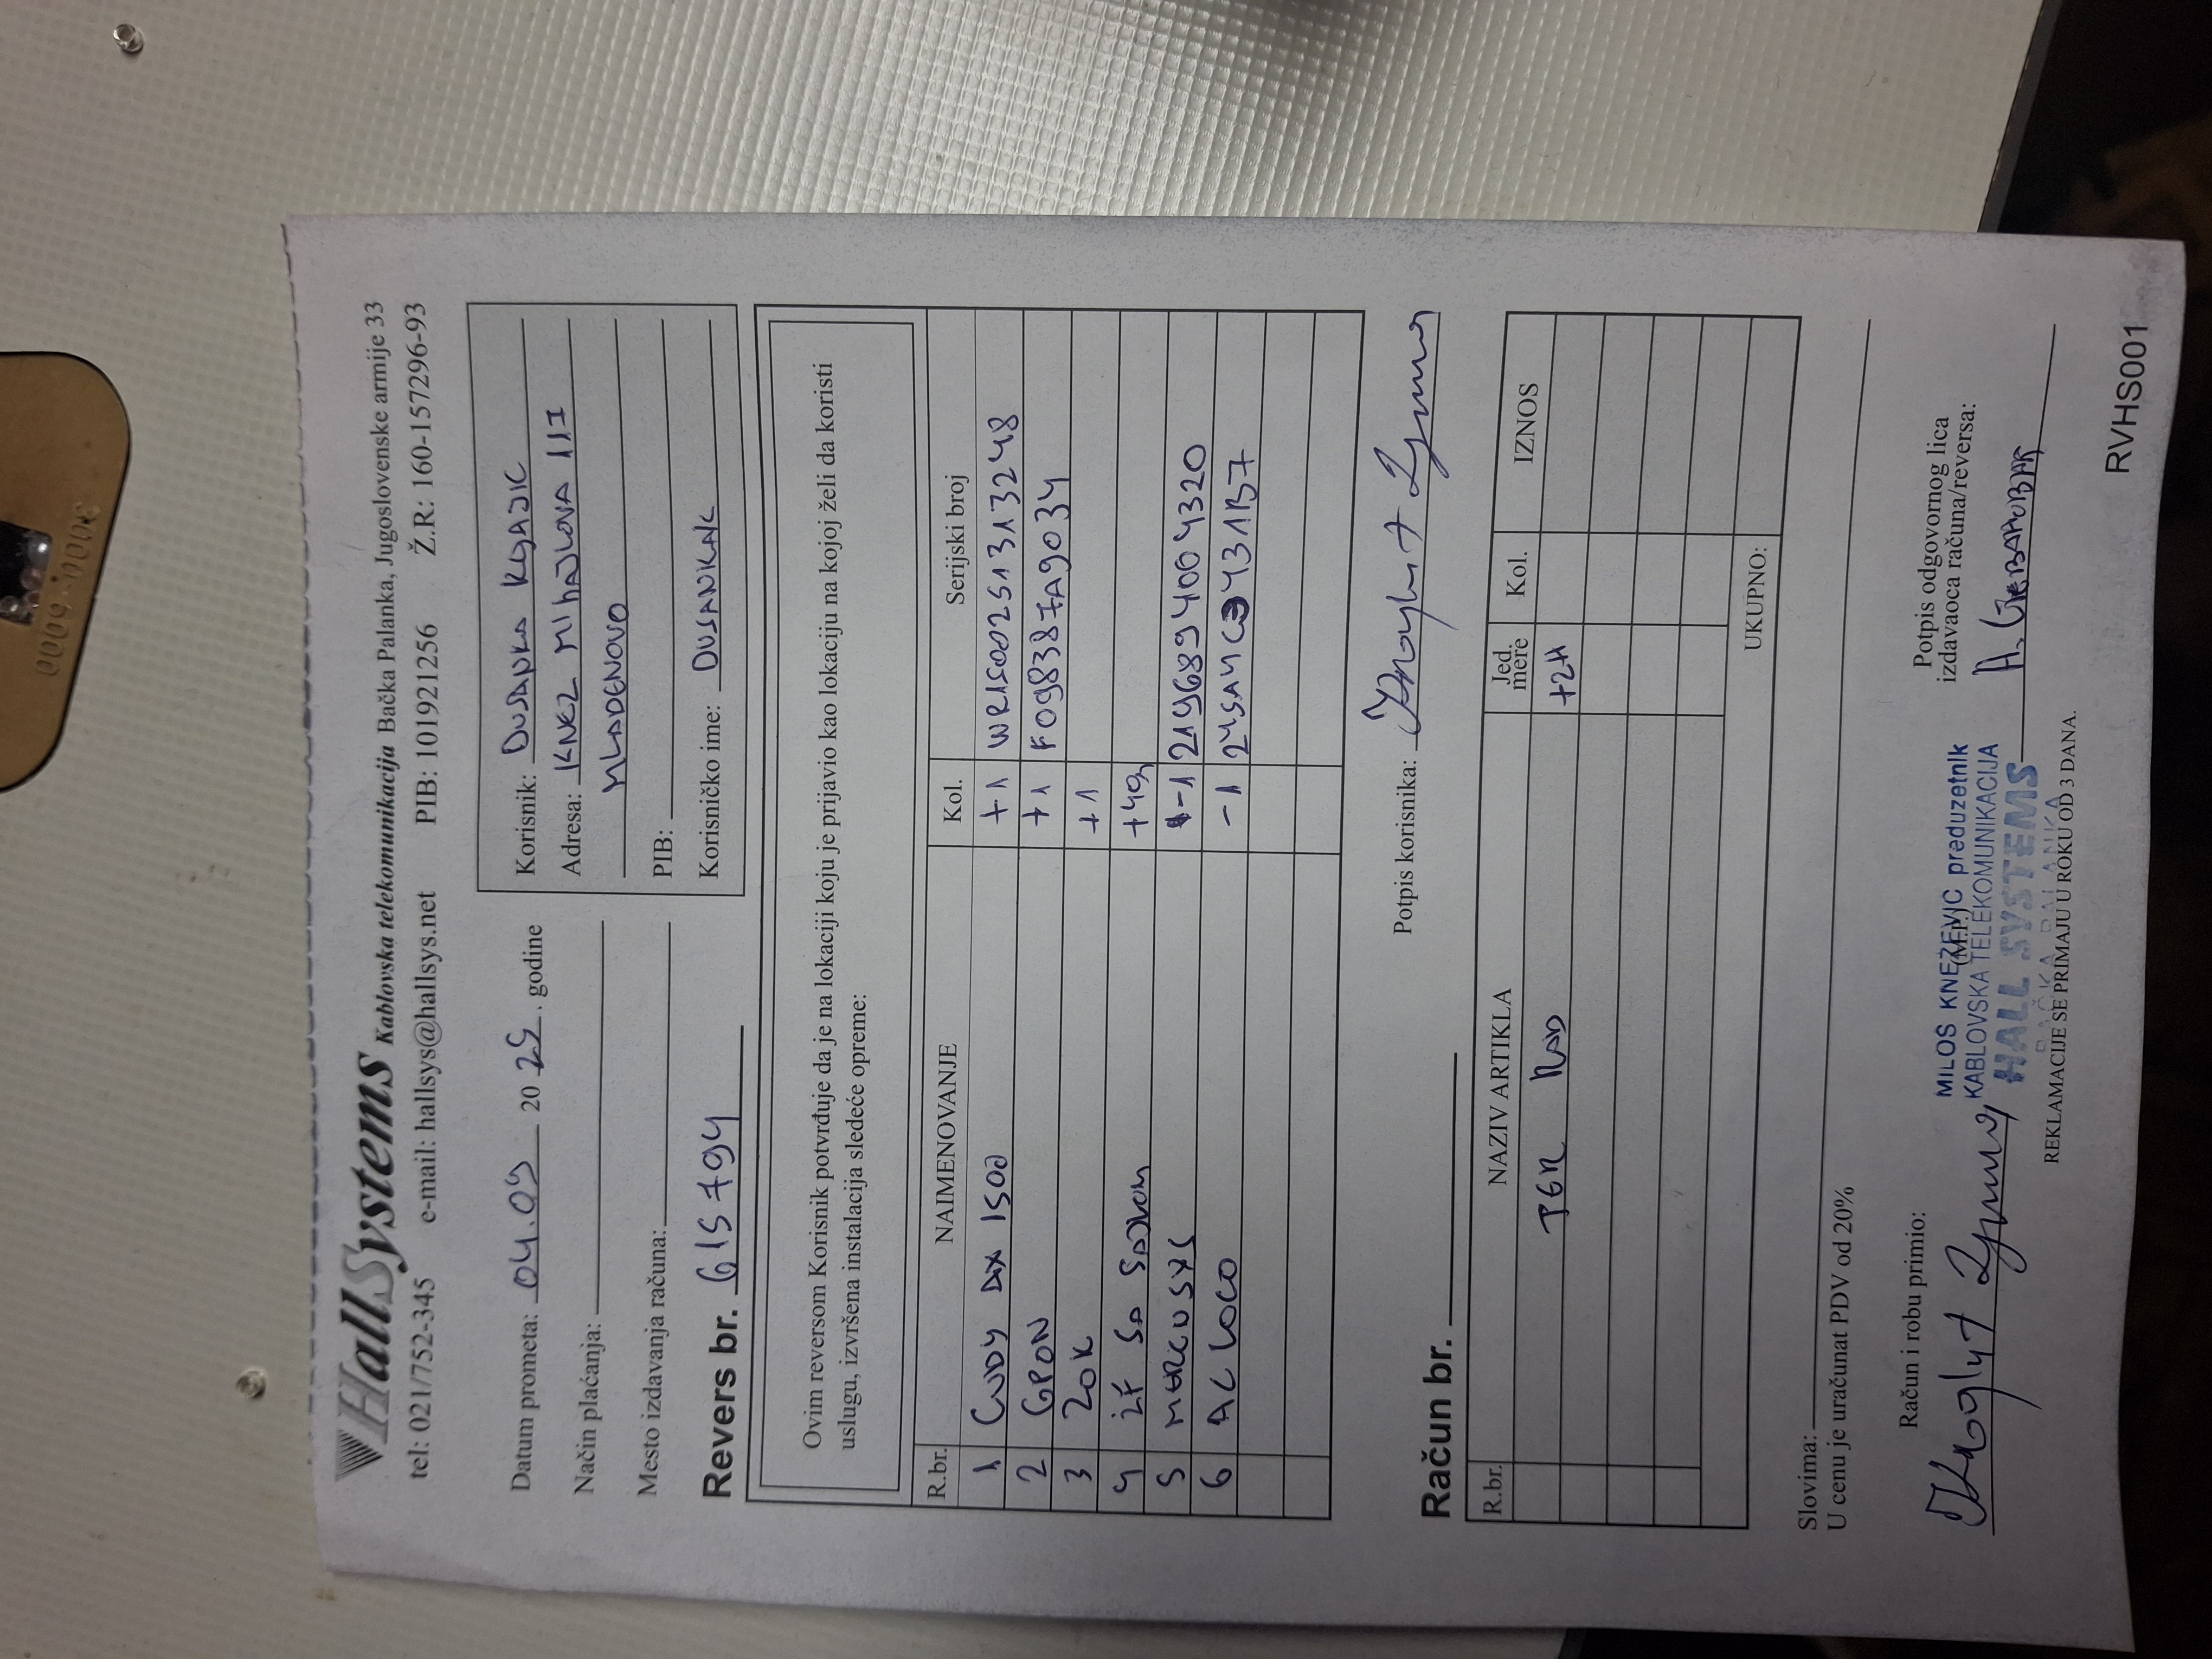 HallSystems Kablovska telekomunikacija Bačka Palanka, Jugoslovenske armije 33
tel: 021/752-345 e-mail: hallsys@hallsys.net PIB: 101921256 Ž.R.: 160-157296-93
Datum prometa: 04.09 20 25. godine
Način plaćanja:
Mesto izdavanja računa:
Revers br. 615794
Korisnik: DUSANKA KLJAJIC
Adresa: KNEZ MIHAJLOVA 117
MLADENOVO
PIB:
Korisničko ime: DUSANKAK
Ovim reversom Korisnik potvrđuje da je na lokaciji koju je prijavio kao lokaciju na kojoj želi da koristi
uslugu, izvršena instalacija sledeće opreme:
R.br. NAIMENOVANJE Kol. Serijski broj
1 CUDY 1500 +1 WR1500251313248
2 GPON +1 F098387A9034
3 ZOK +1
4 2F +40m
5 MERCUSYS -1 2196894004320
6 AC LOCO -1
Potpis korisnika:
Račun br.
R.br. NAZIV ARTIKLA Jed. mere Kol. IZNOS
+2H
UKUPNO:
Slovima:
U cenu je uračunat PDV od 20%
Račun i robu primio:
(M.P.)
MILOS KNEZEVIC preduzetnik
KABLOVSKA TELEKOMUNIKACIJA
HALL SYSTEMS
BAČKA PALANKA
Potpis odgovornog lica
izdavaoca računa/reversa:
REKLAMACIJE SE PRIMAJU U ROKU OD 3 DANA.
RVHS001